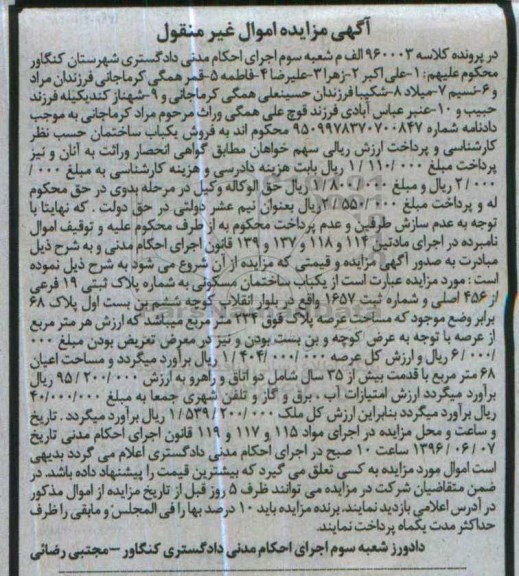 آگهی مزایده اموال غیر منقول
در پرونده کلاسه ۹۶۰۰۰۳ الف م شعبه سوم اجرای احکام مدنی دادگستری شهرستان کنگاور
محکوم علیهم: ۱-علی اکبر ۲-زهرا ۳-علیرضا ۴-فاطمه ۵-قمر همگی کرماجانی فرزندان مراد
و ۶-نسیم ۷-میلاد ۸-شکیبا فرزندان حسینعلی همگی کرماجانی و ۹-شهناز کندیکیله فرزند
حبیب و ۱۰-عنبر عباس آبادی فرزند قوچ علی همگی وراث مرحوم مراد کرماجانی به موجب
دادنامه شماره ۹۵۰۹۹۷۸۳۷۰۷۰۰۸۴۷ محکوم اند به فروش یکباب ساختمان حسب نظر
کارشناسی و پرداخت ارزش ریالی سهم خواهان مطابق گواهی انحصار وراثت به آنان و نیز
پرداخت مبلغ ۱/۱۱۰/۰۰۰ ریال بابت هزینه دادرسی و هزینه کارشناسی به مبلغ ۰۰۰/
۲/۰۰۰ ریال و مبلغ ۱/۸۰۰/۰۰۰ ریال حق الوکاله وکیل در مرحله بدوی در حق محکوم
له و پرداخت مبلغ ۲/۵۵۰/۰۰۰ ریال بعنوان نیم عشر دولتی در حق دولت . که نهایتا با
توجه به عدم سازش طرفین و عدم پرداخت محکوم به از طرف محکوم علیه و توقیف اموال
نامبرده در اجرای مادتین ۱۱۴ و ۱۱۸ و ۱۳۷ و ۱۳۹ قانون اجرای احکام مدنی و به شرح ذیل
مبادرت به صدور آگهی مزایده و قیمتی که مزایده از آن شروع می شود به شرح ذیل نموده
است : مورد مزایده عبارت است از یکباب ساختمان مسکونی به شماره پلاک ثبتی ۱۹ فرعی
از ۴۵۶ اصلی و شماره ثبت ۱۶۵۷ واقع در بلوار انقلاب کوچه ششم بن بست اول پلاک ۶۸
برابر وضع موجود که مساحت عرصه پلاک فوق ۲۳۴ متر مربع میباشد که ارزش هر متر مربع
از عرصه با توجه به عرض کوچه و بن بست بودن و نیز در معرض تعریض بودن مبلغ ۰۰۰
/۶/۰۰۰ ریال و ارزش کل عرصه ۱/۴۰۴/۰۰۰/۰۰۰ ریال برآورد میگردد و مساحت اعیان
۶۸ متر مربع با قدمت بیش از ۳۵ سال شامل دو اتاق و راهرو به ارزش ۹۵/۲۰۰/۰۰۰ ریال
برآورد میگردد ارزش امتیازات آب ، برق و گاز و تلفن شهری جمعا به مبلغ ۴۰/۰۰۰/۰۰۰
ریال برآورد میگردد بنابراین ارزش کل ملک ۱/۵۳۹/۲۰۰/۰۰۰ ریال برآورد میگردد . تاریخ
و ساعت و محل مزایده در اجرای مواد ۱۱۵ و ۱۱۷ و ۱۱۹ قانون اجرای احکام مدنی تاریخ
۱۳۹۶/۰۶/۰۷ ساعت ۱۰ صبح در اجرای احکام مدنی دادگستری اعلام می گردد بدیهی
است اموال مورد مزایده به کسی تعلق می گیرد که بیشترین قیمت را پیشنهاد داده باشد. در
ضمن متقاضیان شرکت در مزایده می توانند ظرف ۵ روز قبل از تاریخ مزایده از اموال مذکور
در آدرس اعلامی بازدید نمایند. برنده مزایده باید ۱۰ درصد بها را فی المجلس و مابقی را ظرف
حداکثر مدت یکماه پرداخت نمایند.
دادورز شعبه سوم اجرای احکام مدنی دادگستری کنگاور -مجتبی رضائی